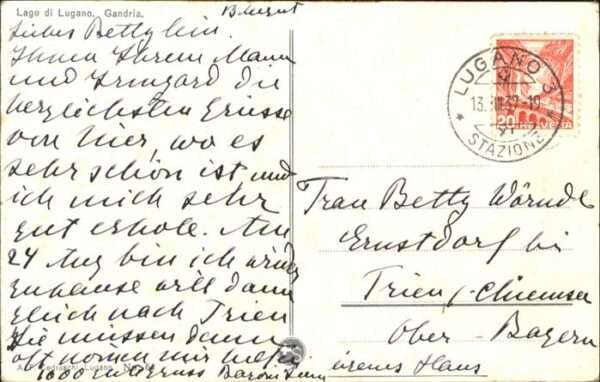 Lago di Lugano. Gandria.
Liebes Bettylein.
Ihnen Ihrem Mann
und Irmgard die
herzlichsten Grüsse
von hier, wo es
sehr schön ist und
ich mich sehr
gut erhole. Am
24 Aug bin ich wieder
zuhause will dann
gleich nach Prien
Sie müssen dann
oft kommen mir helfen
1000 gute Gruss
LUGANO 3
13. VIII 39-19
STAZIONE
20 HELVETIA
Frau Betty Wörndl
Ernstdorf bei
Prien/Chiemsee
Ober-Bayern
eigenes Haus